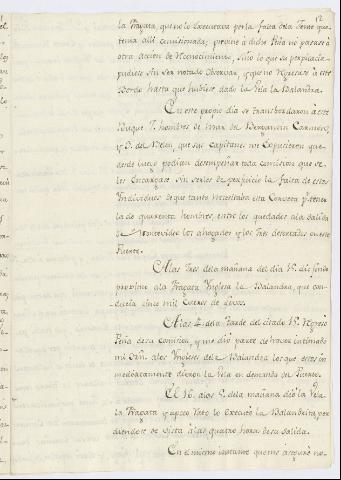 12
la Fragata, que no lo Executava por la falta dela Jente que
tenia alli comisionada; previne à dicho Peña no pasase à
otra accion de Reconocimiento, sino lo que su perspicacia
pudiese sin ser notado observar, y que no Regresase à este
Bordo hasta que hubiese dado la Vela la Balandra.
En este propio dia se transbordaron à este
Buque 7. hombres de mar del Bergantin Carmen,
y 3. del Belen, que sus capitanes me Expusieron que
desde luego podian desempeñar toda comision que se
les Encargase sin serles de perjuicio la falta de estos
Individuos de que tanto necesitaba esta Corveta p.r
la de quarenta hombres, entre los quedados ala salida
de Montevideo los ahogados y los tres desertados en este
Puerto.
A las tres dela mañana del dia 15. dio fondo
proximo ala Fragata Ynglesa la Balandra, que con-
ducia cinco mil Cueros de Lovos.
A las 4. dela tarde del citado 15. Regreso
Peña de su comision, y me dió parte de haver intimado
mi orn. alos Yngleses dela Balandra los que estos in-
mediatamente dieron la Vela en demanda del Puerto.
El 16. alas 9. dela mañana dió la Vela
la Fragata y apoco rato lo executó la Balandra, per-
diendose de vista alas quatro horas de su salida.
En el mismo instante que me aseguré no-